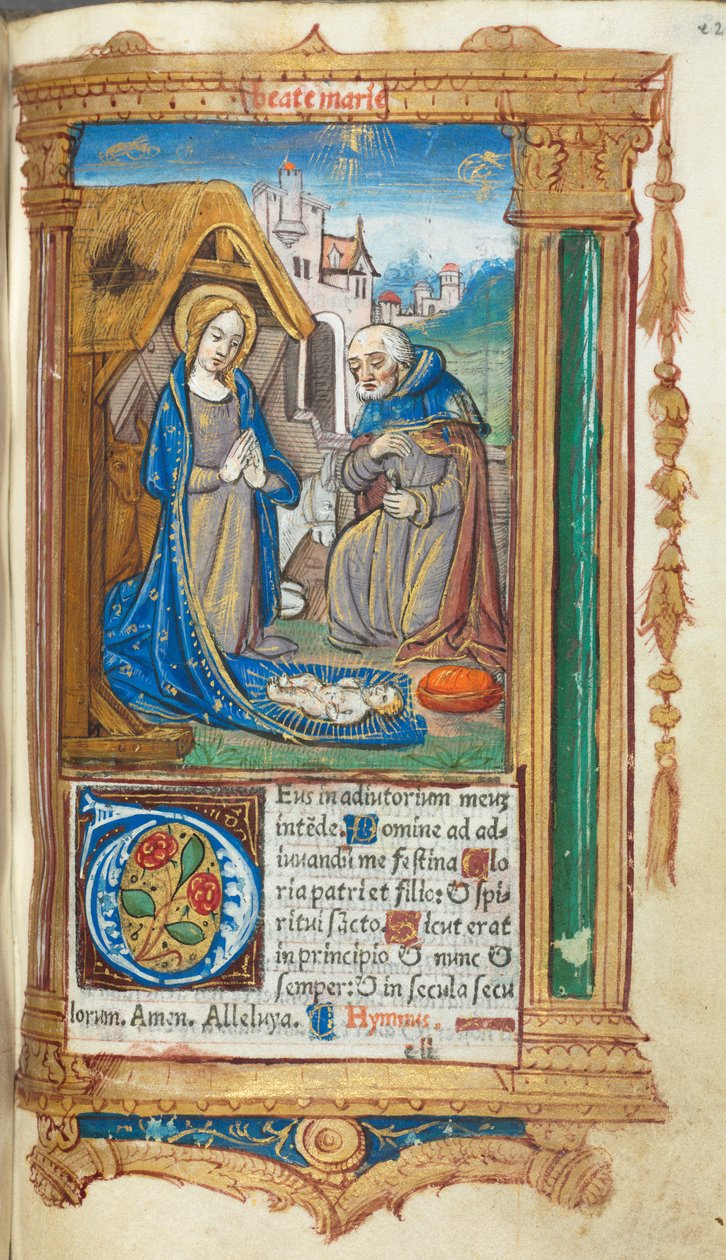 e 2
beate marie
DEus in adiutorium meuʒ
intēde. Domine ad ad⸗
iuuandū me festina Glo
ria patri et filio: & spi⸗
ritui sācto. Sicut erat
in principio & nunc &
semper: & in secula secu
lorum. Amen. Alleluya. Hymnus.